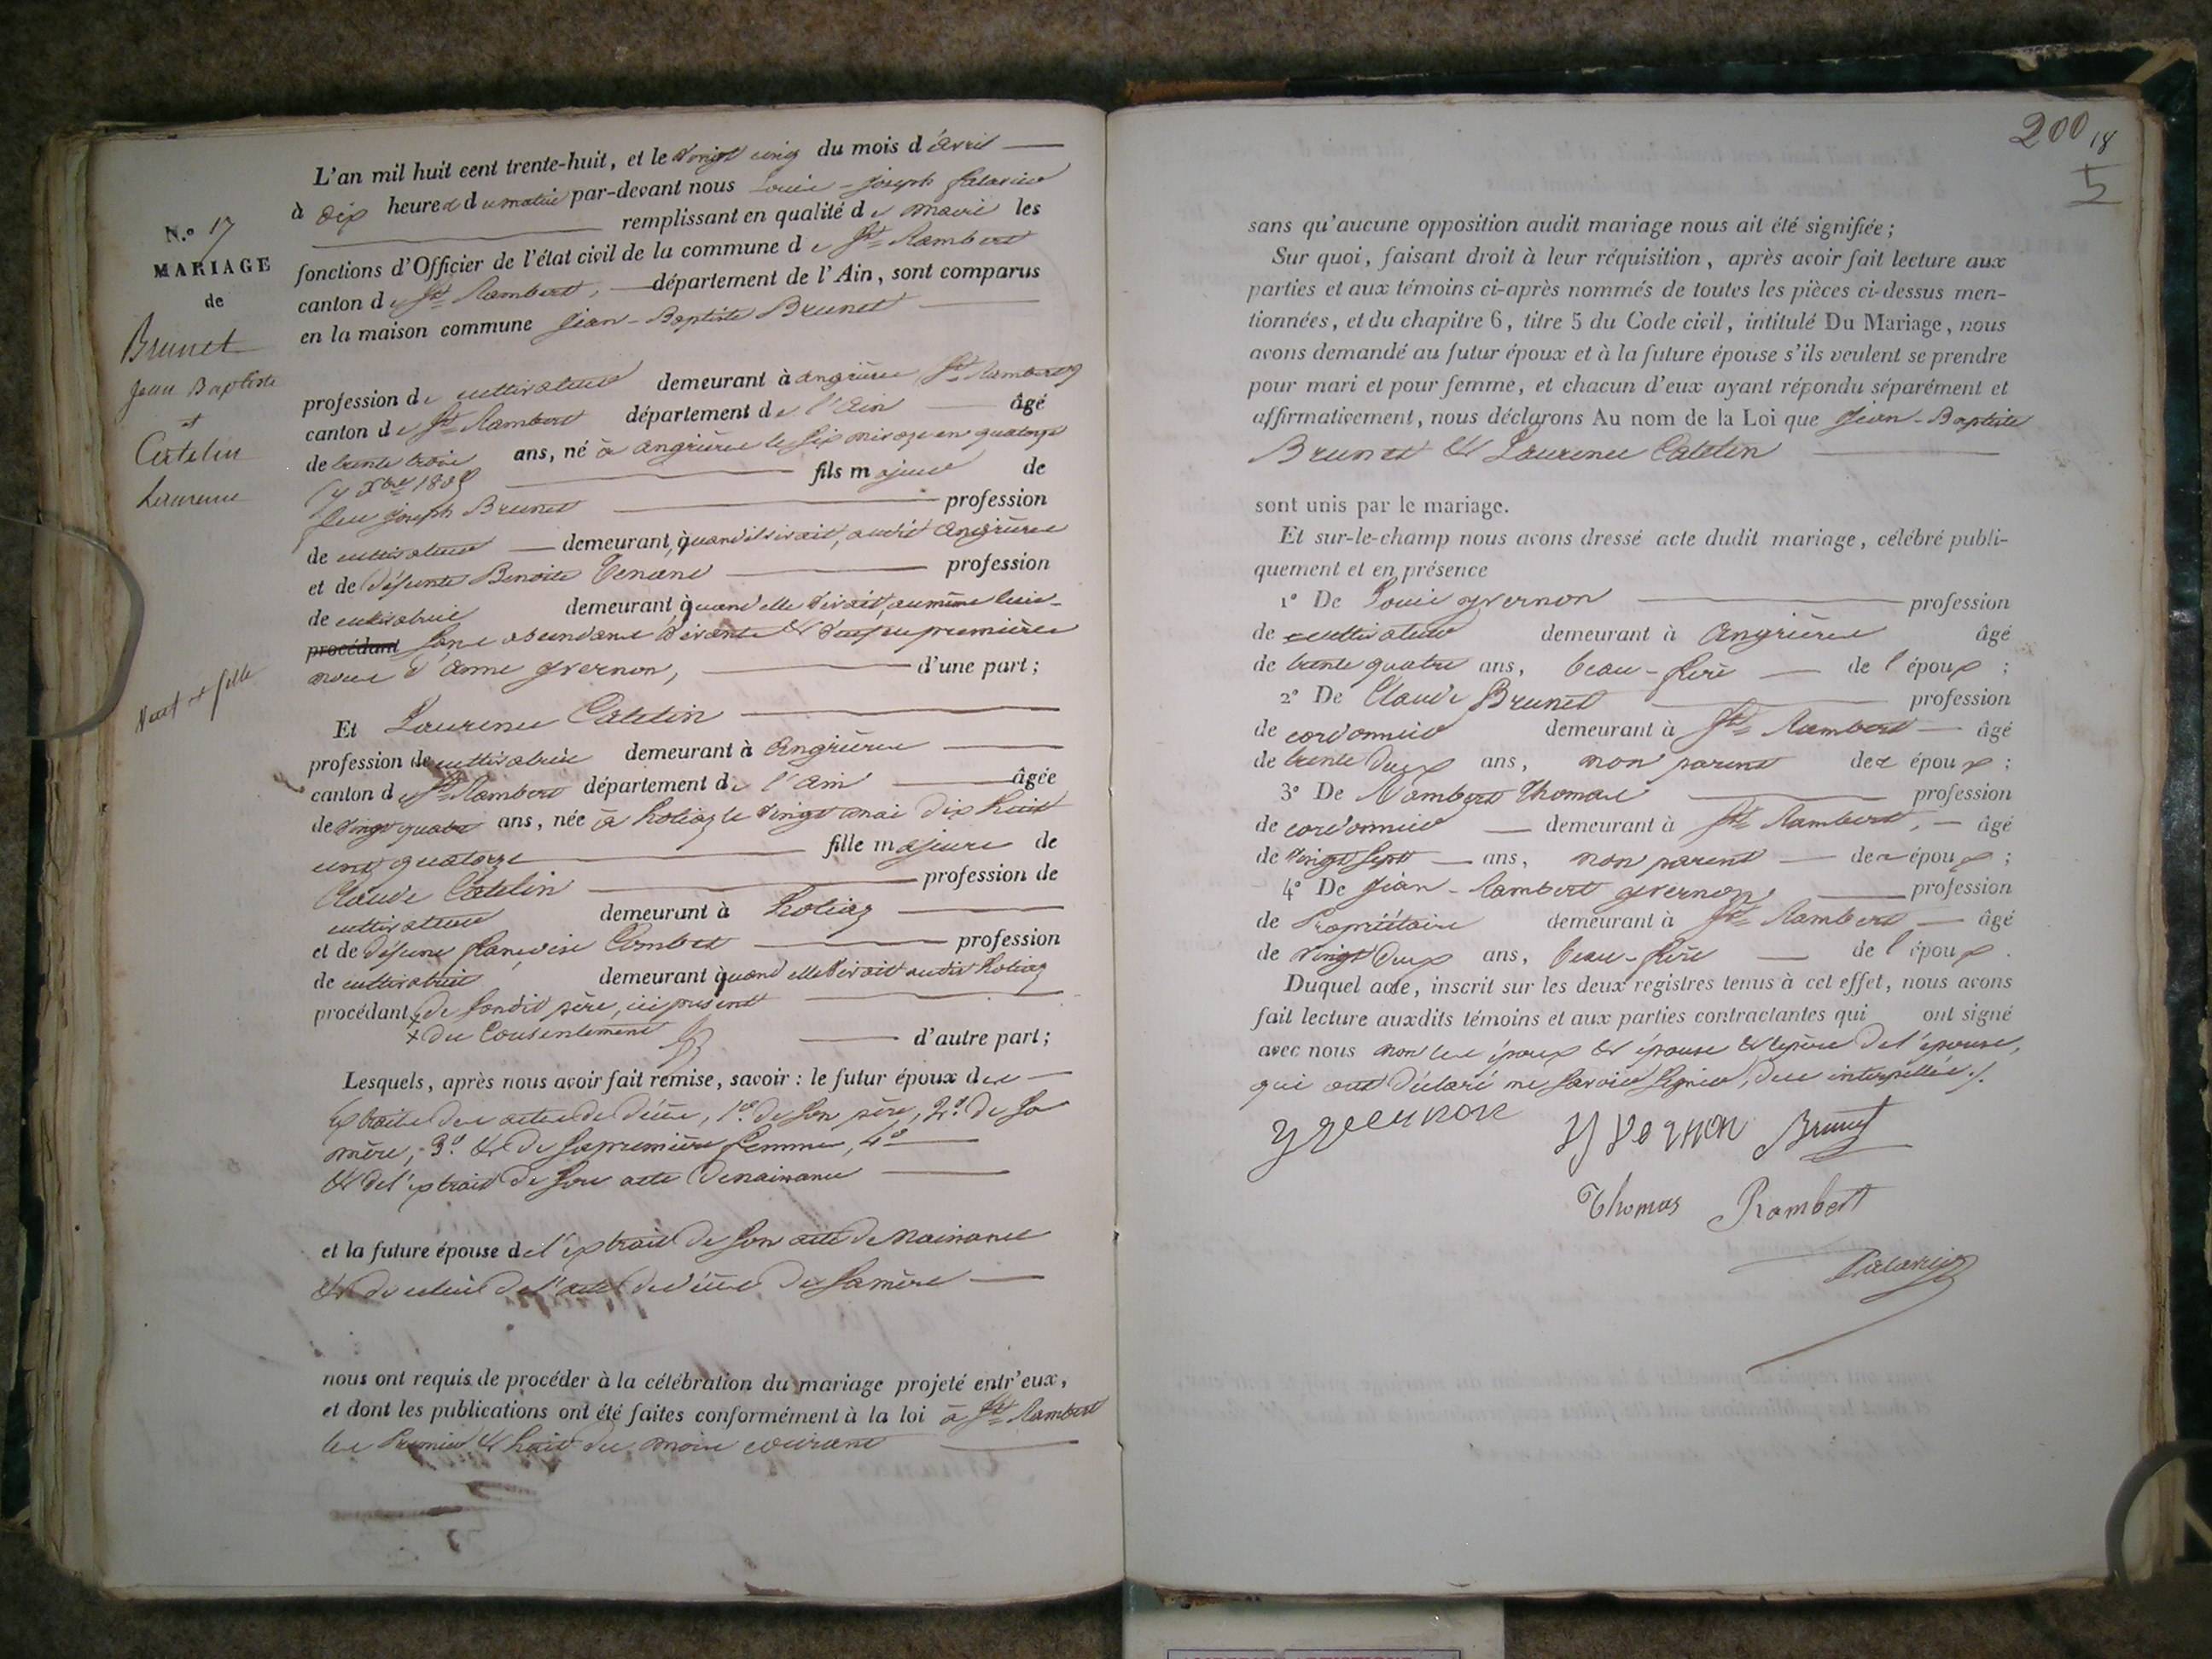 L'an mil huit cent trente-huit, et le vingt cinq du mois d'avril
à dix heures du matin par-devant nous Louis-Joseph
remplissant en qualité de maire les
fonctions d'Officier de l'état civil de la commune de St Rambert
canton de St Rambert, département de l'Ain, sont comparus
en la maison commune Jean-Baptiste Brunet
N.o 17
MARIAGE
de
Brunet
Jean Baptiste
et
Catelin
Laurence
Veuf et fille
profession de cultivateur demeurant à angrières St Rambert
canton de St Rambert département de l'Ain âgé
de trente trois ans, né à angrières le six nivose an quatorze
fils majeur de
feu Joseph Brunet profession
de cultivateur demeurant, quand il vivait, audit angrières
et de défunte Benoite profession
de cultivatrice demeurant, quand elle vivait, au même lieu
procédant sans ascendans vivants & veuf en premières
noces d'anne yvernon, d'une part;
Et Laurence Catelin
profession de cultivatrice demeurant à angrières
canton de St Rambert département de l'ain âgée
de vingt quatre ans, née à hotiaz le vingt mai dix huit
cent quatorze fille majeure de
Claude Catelin profession de
cultivateur demeurant à hotiaz
et de défunte françoise Combet profession
de cultivatrice demeurant quand elle vivait audit hotiaz
procédant x de sondit père, ici présent
x du Consentement d'autre part;
Lesquels, après nous avoir fait remise, savoir : le futur époux des
extraits des actes de décès, 1º de son père, 2º de sa
mère, 3º & de sa première femme, 4º
& de l'extrait de son acte de naissance
et la future épouse de l'extrait de son acte de naissance
& de celui de l'acte de décès de sa mère
nous ont requis de procéder à la célébration du mariage projeté entr'eux,
et dont les publications ont été faites conformément à la loi à St Rambert
les premier & huit du mois courant
200 18
5
sans qu'aucune opposition audit mariage nous ait été signifiée;
Sur quoi, faisant droit à leur réquisition, après avoir fait lecture aux
parties et aux témoins ci-après nommés de toutes les pièces ci-dessus men-
tionnées, et du chapitre 6, titre 5 du Code civil, intitulé Du Mariage, nous
avons demandé au futur époux et à la future épouse s'ils veulent se prendre
pour mari et pour femme, et chacun d'eux ayant répondu séparément et
affirmativement, nous déclarons Au nom de la Loi que Jean-Baptiste
Brunet & Laurence Catelin
sont unis par le mariage.
Et sur-le-champ nous avons dressé acte dudit mariage, célébré publi-
quement et en présence
1º De Louis yvernon profession
de cultivateur demeurant à angrières âgé
de trente quatre ans, beau-frère de l'époux;
2º De Claude Brunet profession
de cordonnier demeurant à St Rambert âgé
de trente deux ans, non parent des époux;
3º De Rambert Thomas profession
de cordonnier demeurant à St Rambert, âgé
de vingt sept ans, non parent des époux;
4º De Jean-Rambert yvernon, profession
de Propriétaire demeurant à St Rambert âgé
de vingt deux ans, beau-frère de l'époux.
Duquel acte, inscrit sur les deux registres tenus à cet effet, nous avons
fait lecture auxdits témoins et aux parties contractantes qui ont signé
avec nous non les époux & épouse & le père de l'épouse,
qui ont déclaré ne savoir signer, de ce interpellés./.
yvernon yvernon Brunet
Thomas Rambert